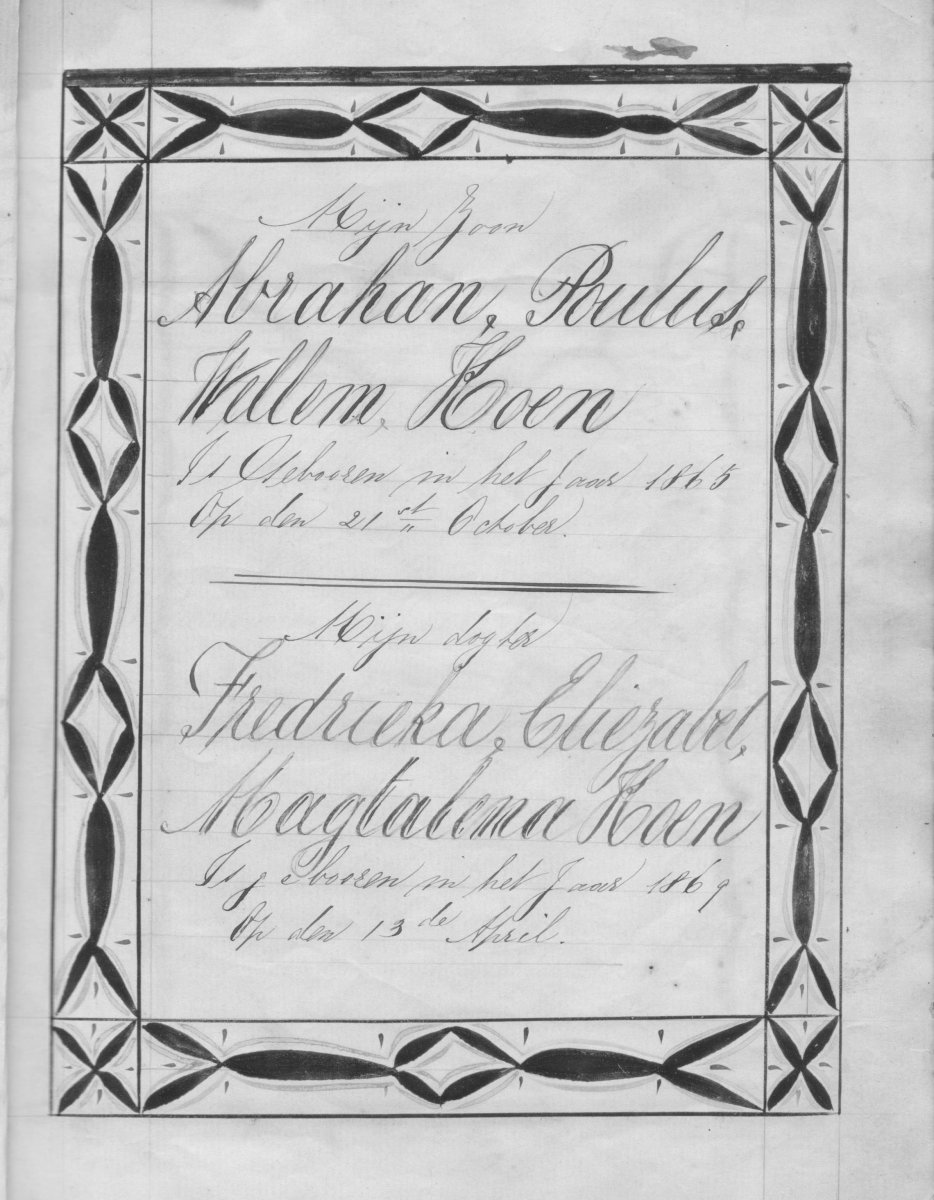 Mijn Zoon
Abrahan, Poulus,
Wellem, Koen
Is Gebooren in het Jaar 1865
Op den 21st October.
Mijn dogter
Fredrieka, Eliezabet,
Magtalema Koen
Is gebooren in het Jaar 1869
Op den 13de April.